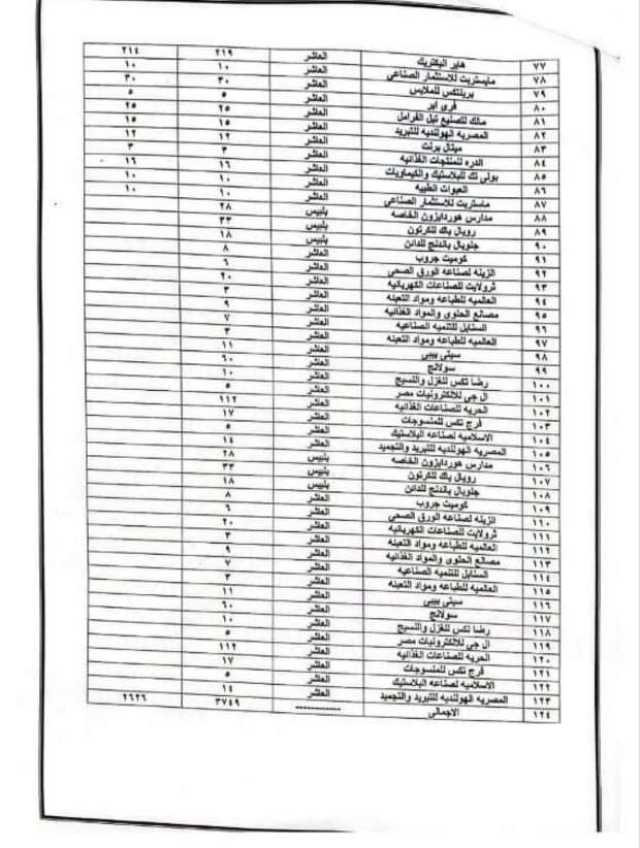 ٧٧ هاير اليكتريك العاشر ٢١٩ ٢١٤
٧٨ مايستريت للاستثمار الصناعي العاشر ١٠ ١٠
٧٩ برينتكس للملابس العاشر ٣٠ ٣٠
٨٠ فرى اير العاشر ٥ ٥
٨١ مالك لتصنيع تيل الفرامل العاشر ٢٥ ٢٥
٨٢ المصريه الهولنديه للتبريد العاشر ١٥ ١٥
٨٣ ميتال برنت العاشر ١٢ ١٢
٨٤ الدره للمنتجات الغذائيه العاشر ٣ ٣
٨٥ بولى تك للبلاستيك والكيماويات العاشر ١٦ ١٦
٨٦ العبوات الطبيه العاشر ١٠ ١٠
٨٧ ماستريت للاستثمار الصناعي العاشر ١٠ ١٠
٨٨ مدارس هوردايزون الخاصه بلبيس ٢٨
٨٩ رويال باك للكرتون بلبيس ٣٣
٩٠ جلوبال باندنج للدائن بلبيس ١٨
٩١ كوميت جروب العاشر ٨
٩٢ الزينه لصناعه الورق الصحى العاشر ٦
٩٣ ثرولايت للصناعات الكهربائيه العاشر ٢٠
٩٤ العالميه للطباعه ومواد التعبنه العاشر ٣
٩٥ مصانع الحلوى والمواد الغذائيه العاشر ٩
٩٦ السنابل للتنميه الصناعيه العاشر ٧
٩٧ العالميه للطباعه ومواد التعبنه العاشر ٣
٩٨ سيتى بيبى العاشر ١١
٩٩ سولانج العاشر ٦٠
١٠٠ رضا تكس للغزل والنسيج العاشر ١٠
١٠١ ال جي للالكترونيات مصر العاشر ٥
١٠٢ الحريه للصناعات الغذائيه العاشر ١١٢
١٠٣ فرج تكس للمنسوجات العاشر ١٧
١٠٤ الاسلاميه لصناعه البلاستيك العاشر ٥
١٠٥ المصريه الهولنديه للتبريد والتجميد العاشر ١٤
١٠٦ مدارس هوردايزون الخاصه بلبيس ٢٨
١٠٧ رويال باك للكرتون بلبيس ٣٣
١٠٨ جلوبال باندنج للدائن بلبيس ١٨
١٠٩ كوميت جروب العاشر ٨
١١٠ الزينه لصناعه الورق الصحى العاشر ٦
١١١ ثرولايت للصناعات الكهربائيه العاشر ٢٠
١١٢ العالميه للطباعه ومواد التعبنه العاشر ٣
١١٣ مصانع الحلوى والمواد الغذائيه العاشر ٩
١١٤ السنابل للتنميه الصناعيه العاشر ٧
١١٥ العالميه للطباعه ومواد التعبنه العاشر ٣
١١٦ سيتى بيبى العاشر ١١
١١٧ سولانج العاشر ٦٠
١١٨ رضا تكس للغزل والنسيج العاشر ١٠
١١٩ ال جي للالكترونيات مصر العاشر ٥
١٢٠ الحريه للصناعات الغذائيه العاشر ١١٢
١٢١ فرج تكس للمنسوجات العاشر ١٧
١٢٢ الاسلاميه لصناعه البلاستيك العاشر ٥
١٢٣ المصريه الهولنديه للتبريد والتجميد العاشر ١٤
١٢٤ الاجمالى ------------ ٣٧٤٩ ٢٦٢٦